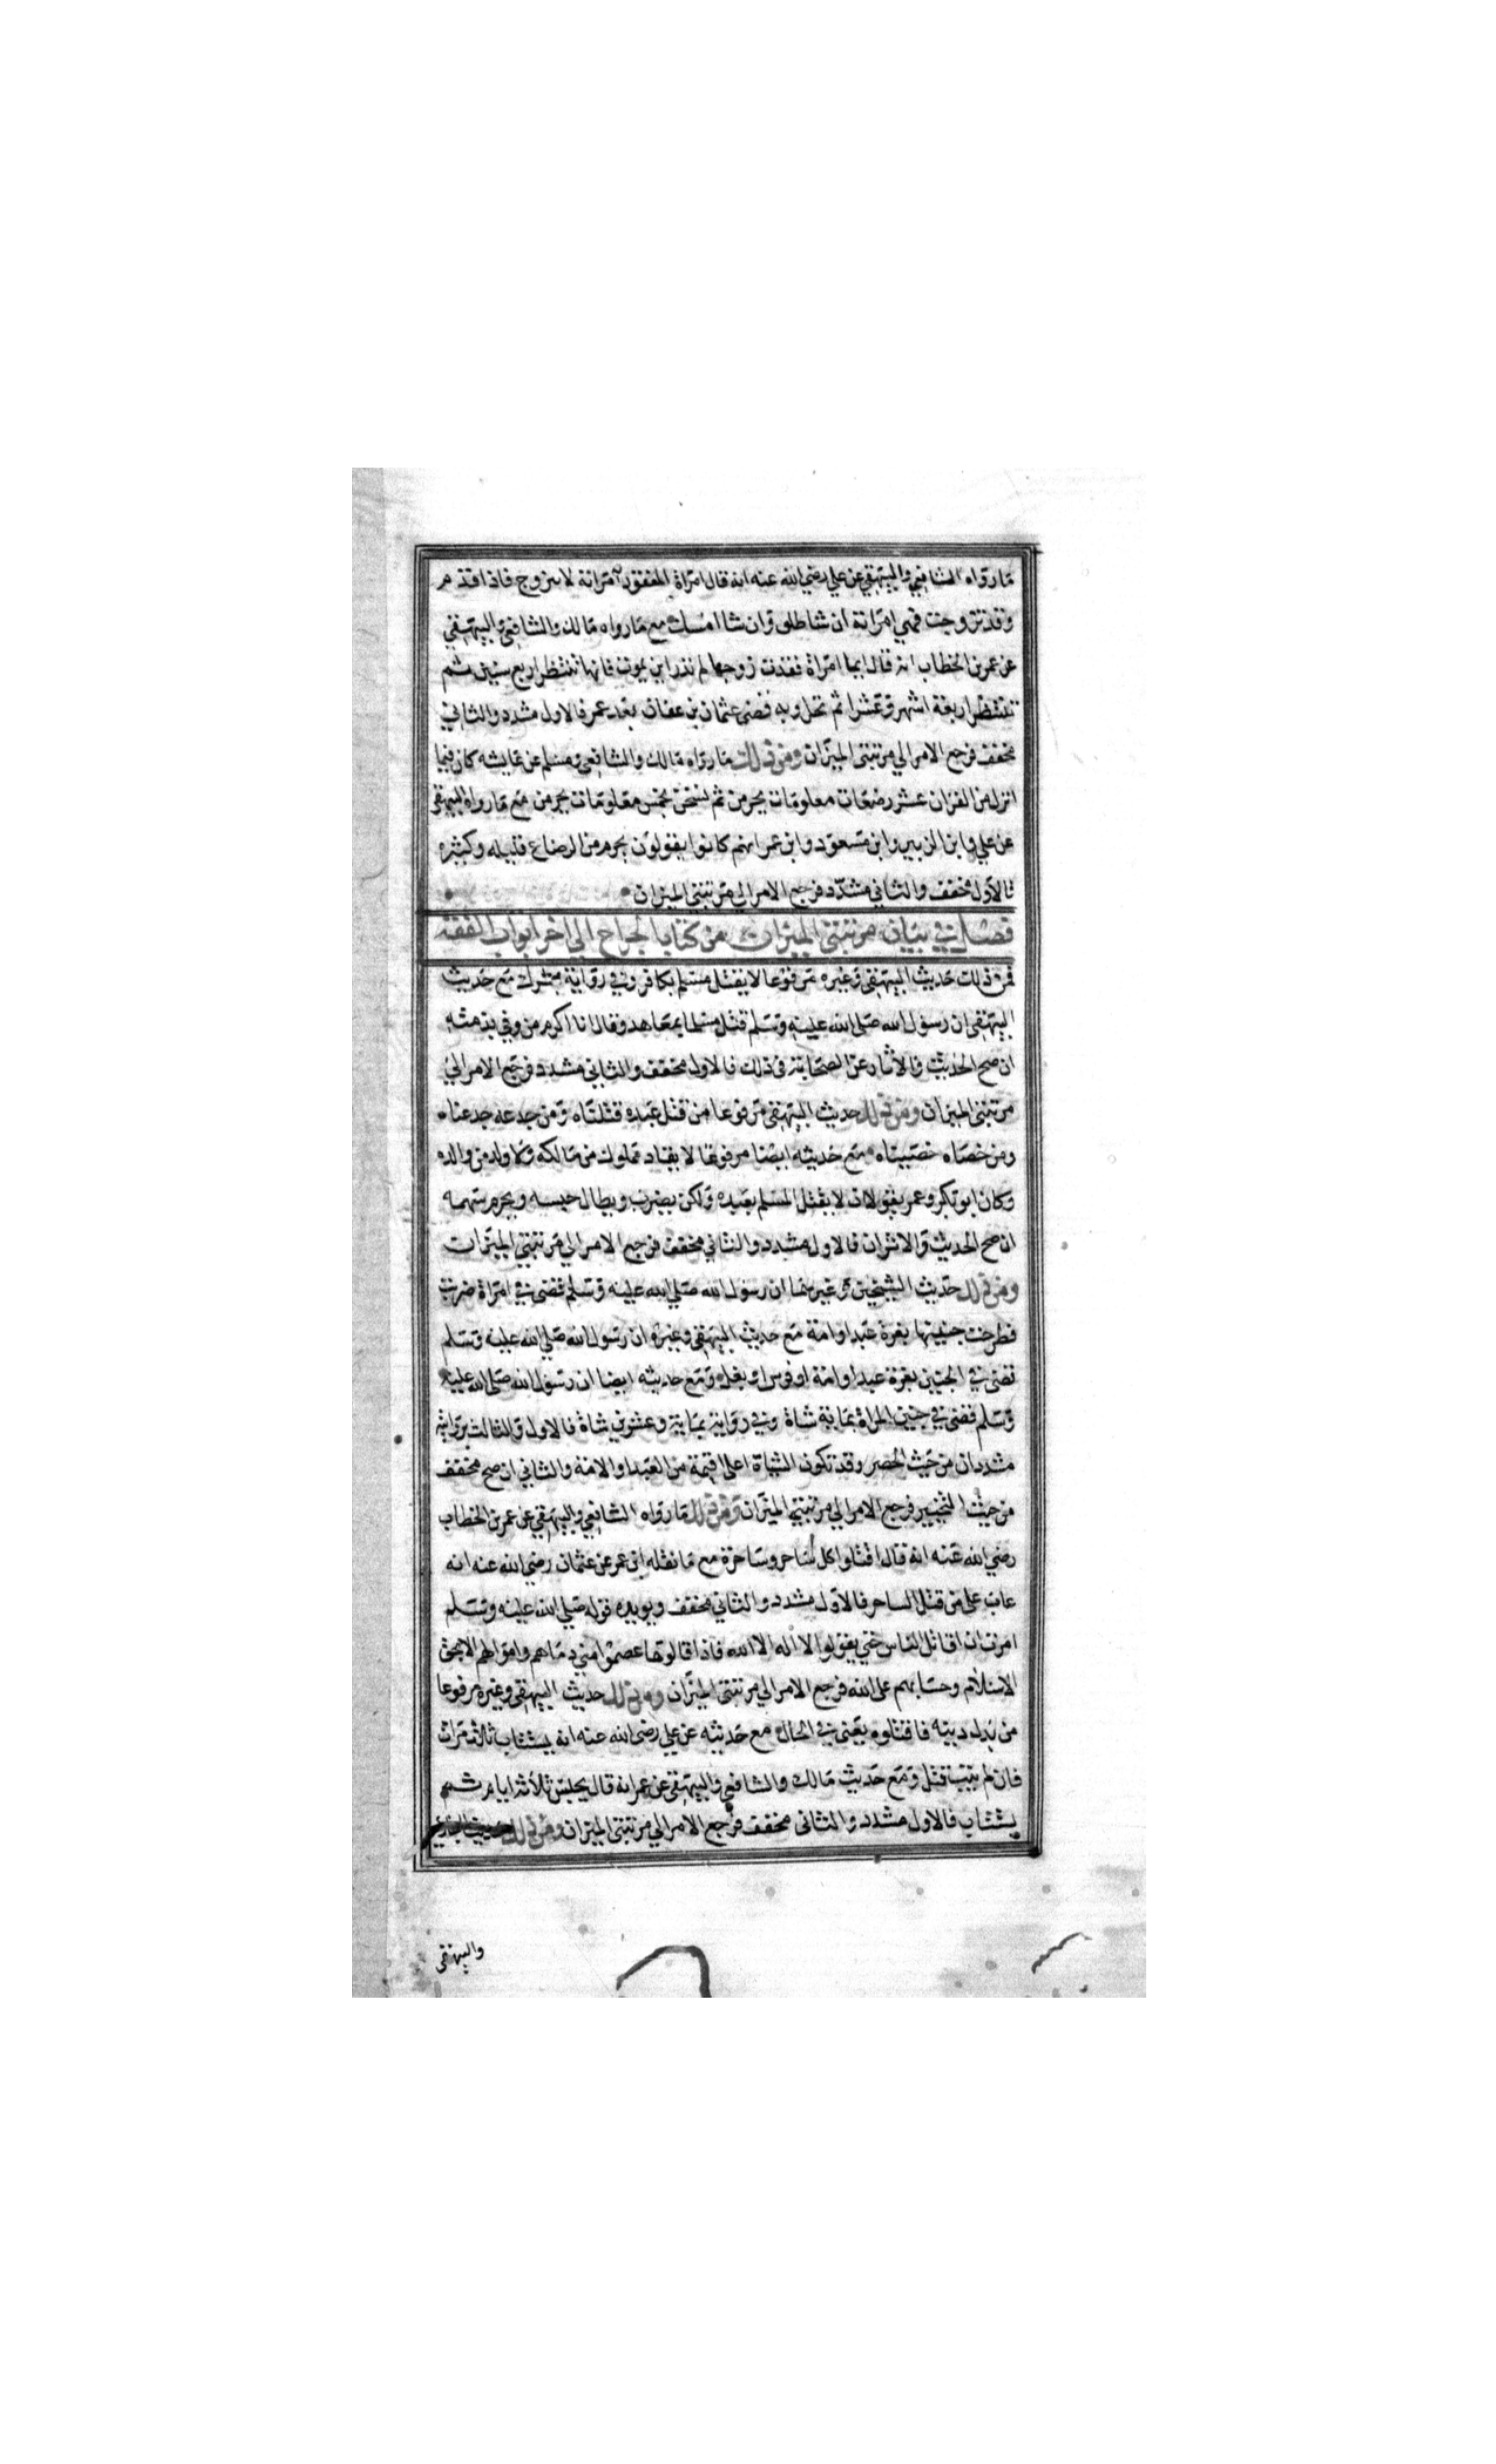 ما رواه الشافعي والبيهقي عن علي رضي الله عنه انه قال امراة المفقود امراته لا تتزوج فاذا قدم
وقد تزوجت فهي امراته ان شا طلق وان شا امسك مع ما رواه مالك والشافعي والبيهقي
عن عمر بن الخطاب انه قال ايما امراة فقدت زوجها لم تدر اين يموت فانها تنتظر اربع سنين ثم
تنتظر اربعة اشهر وعشرا ثم تحل وبه قضى عثمان بن عفان بعد عمر فالاول مشدد والثاني
مخفف فرجع الامر الي مرتبتى الميزان ومن ذلك ما رواه مالك والشافعي ومسلم عن عايشه كان فيما
انزل من القران عشر رضعات معلومات يحرمن ثم نسخن بخمس معلومات يحرمن مع ما رواه البيهقي
عن علي وابن الزبير وابن مسعود وابن عمر انهم كانوا يقولون يحرم من الرضاع قليله وكثيره
فالاول مخفف والثاني مشدد فرجع الامر الي مرتبتي الميزان
فصل في بيان مرتبتى الميزان من كتاب الجراح الي اخر ابواب الفقه
فمن ذلك حديث البيهقي وغيره مرفوعا لا يقتل مسلم بكافر وفي رواية بمشرك مع حديث
البيهقي ان رسول الله صلى الله عليه وسلم قتل مسلما بمعاهد وقال انا اكرم من وفي بذمته
ان صح الحديث والاثار عن الصحابة في ذلك فالاول مخفف والثاني مشدد فرجع الامر الي
مرتبتى الميزان ومن ذلك حديث البيهقي مرفوعا من قتل عبده قتلناه ومن جدعه جدعناه
ومن خصاه خصيناه مع حديثه ايضا مرفوعا لا يقاد مملوك من مالكه ولا ولد من والده
وكان ابو بكر وعمر يقولان لا يقتل المسلم بعبده ولكن يضرب ويطال حبسه ويحرم سهمه
ان صح الحديث والاثران فالاول مشدد والثاني مخفف فرجع الامر الي مرتبتي الميزان
ومن ذلك حديث الشيخين وغيرهما ان رسول الله صلي الله عليه وسلم قضى في امراة ضربت
فطرحت جنينها بغرة عبد او امة مع حديث البيهقي وغيره ان رسول الله صلي الله عليه وسلم
قضى في الجنين بغرة عبد او امة او فرس او بغل ومع حديثه ايضا ان رسول الله صلى الله عليه
وسلم قضى في جنين المراة بماية شاة وفي رواية بماية وعشرين شاة فالاول والثالث بروايته
مشددان من حيث الحصر وقد تكون الشياة اعلا قيمة من العبد او الامة والثاني ان صح مخفف
من حيث التخيير فرجع الامر الي مرتبتي الميزان ومن ذلك ما رواه الشافعي والبيهقي عن عمر بن الخطاب
رضي الله عنه انه قال اقتلوا كل ساحر وساحرة مع ما نقله ابن عمر عن عثمان رضي الله عنه انه
عاب على من قتل الساحر فالاول مشدد والثاني مخفف ويويده قوله صلي الله عليه وسلم
امرت ان اقاتل الناس حتي يقولوا لا اله الا الله فاذا قالوها عصموا مني دماهم واموالهم الا بحق
الاسلام وحسابهم على الله فرجع الامر الي مرتبتى الميزان ومن ذلك حديث البيهقي وغيره مرفوعا
من بدل دينه فاقتلوه يعني في الحال مع حديثه عن علي رضي الله عنه انه يستتاب ثلاث مرات
فان لم يتب قتل ومع حديث مالك والشافعي والبيهقي عن عمر انه قال يحبس ثلاثة ايام ثم
يستتاب فالاول مشدد والثاني مخفف فرجع الامر الي مرتبتى الميزان ومن ذلك حديث
والبيهقي